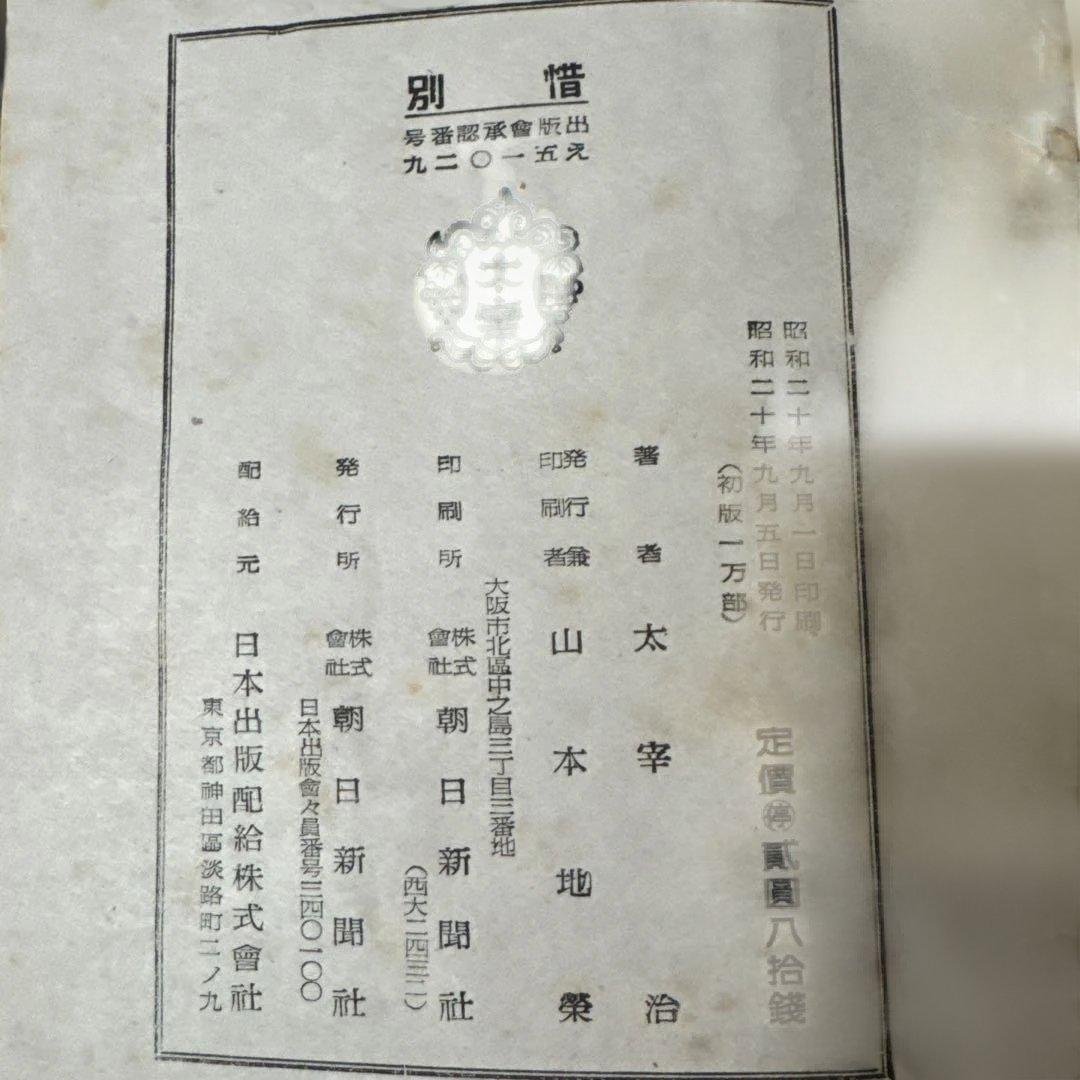 惜別
出版會承認番号
え五一〇二九
昭和二十年九月一日印刷
昭和二十年九月五日発行
(初版一万部)
定價㊡貳圓八拾錢
著者 太宰治
発行兼印刷者 山本地榮
大阪市北區中之島三丁目三番地
印刷所 株式會社 朝日新聞社
(西大二四三二)
発行所 株式會社 朝日新聞社
日本出版會々員番号三四〇一〇〇
配給元 日本出版配給株式會社
東京都神田區淡路町二ノ九